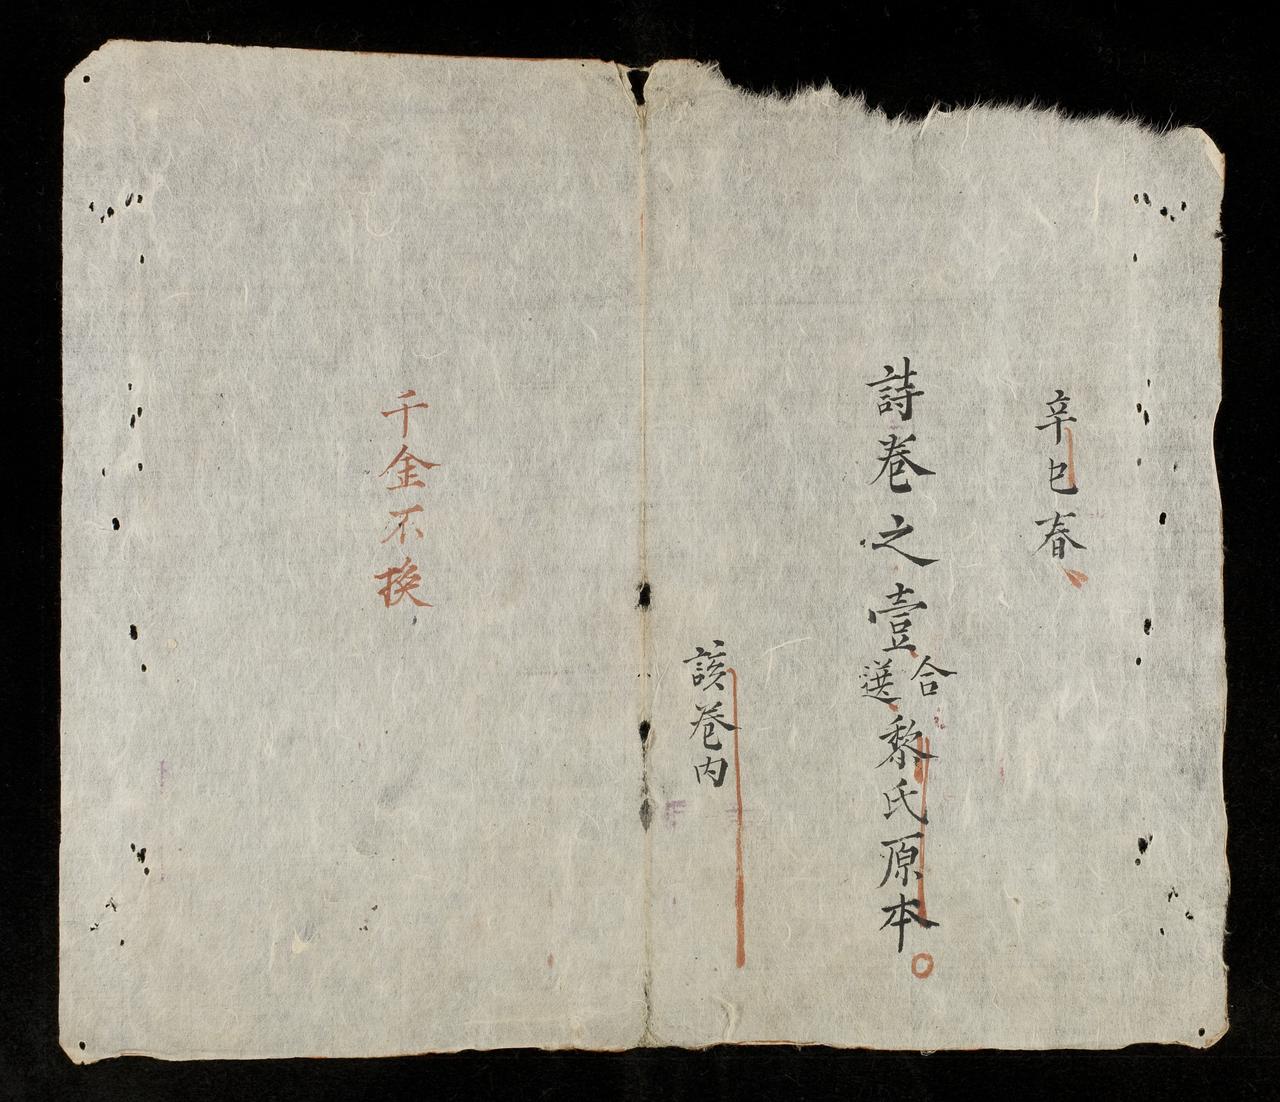 辛巳春
詩卷之壹合選黎氏原本
該卷內
千金不換